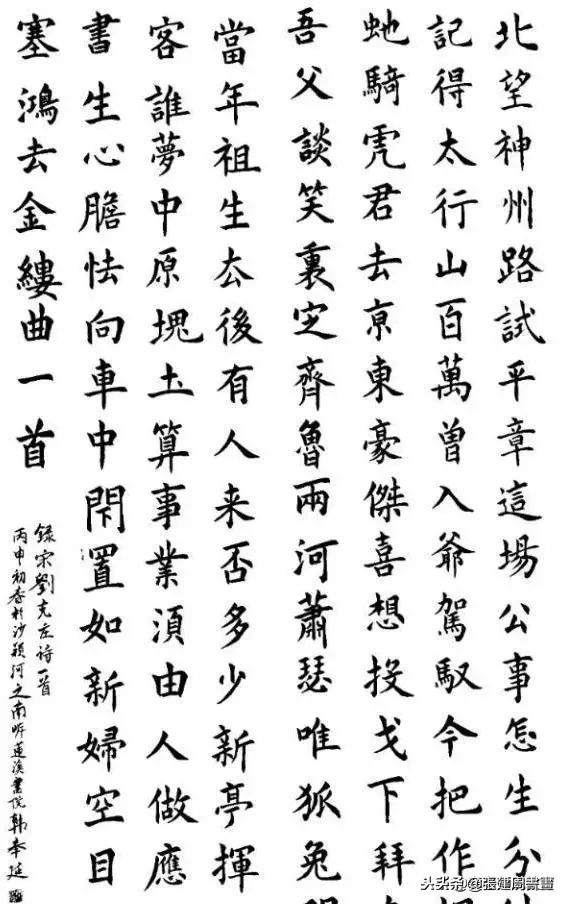 北望神州路試平章這場公事怎生分
記得太行山百萬曽入爺駕馭今把作
虵騎虎君去亰東豪傑喜想投戈下拜
吾父談笑裏定齊魯兩河蕭瑟唯狐兔
當年祖生厺後有人来否多少新亭揮
客誰夢中原塊土算事業須由人做應
書生心膽怯向車中閇置如新婦空目
塞鴻去金縷曲一首
録宋劉克庄诗一首
丙申初春於沙潁河之南岸蓮溪書院韓奉廷
头条@張 周書畫